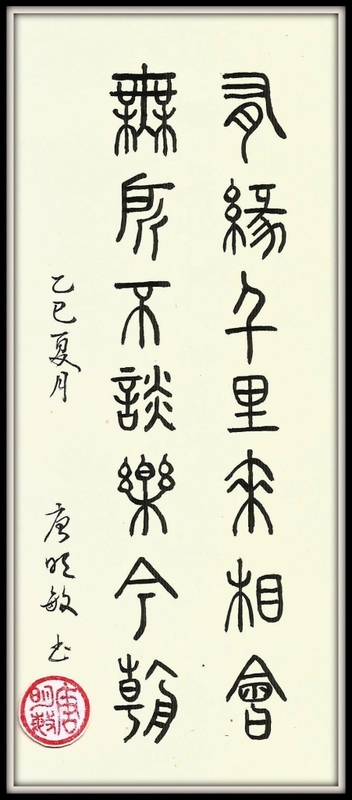 有緣千里來相會
無所不談樂今朝
乙巳夏月
唐明敏书
唐明敏